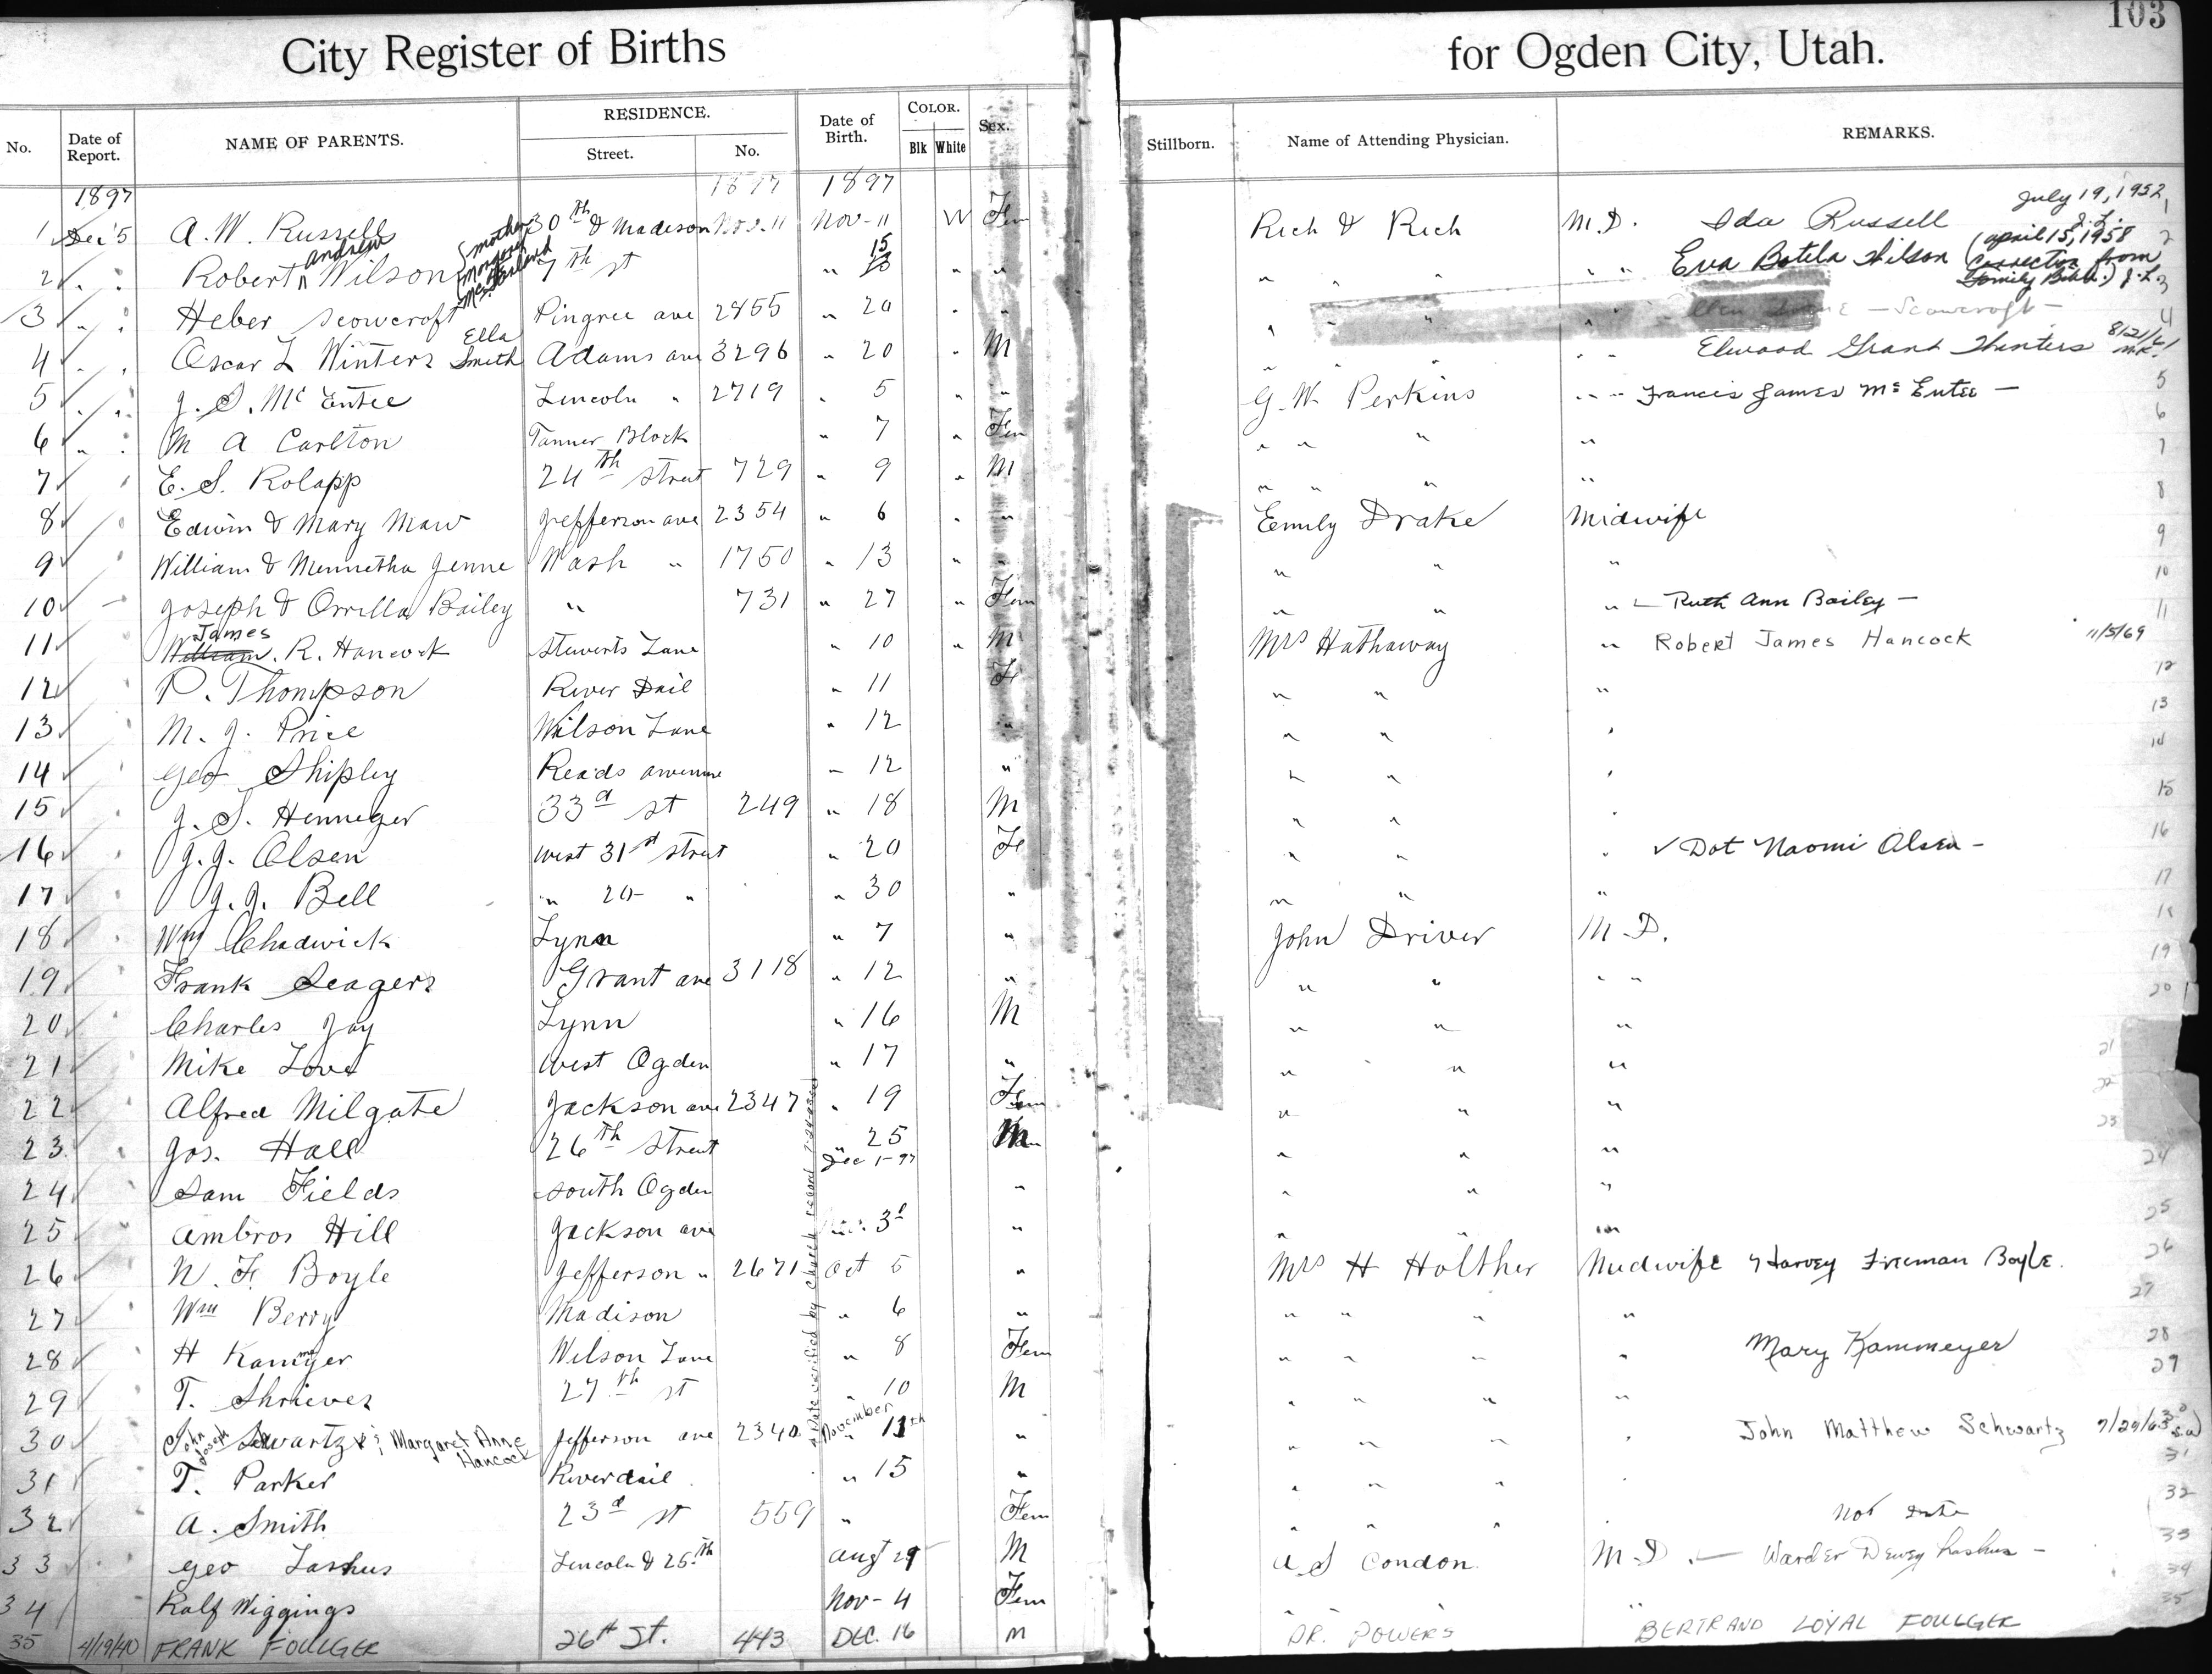 103
City Register of Births for Ogden City, Utah.
No. Date of Report. NAME OF PARENTS. RESIDENCE. Street. No. Date of Birth. COLOR. Blk White Sex. Stillborn. Name of Attending Physician. REMARKS.
1897 1897 1897
July 19, 1952
1 Dec 5 A. W. Russell 30th & Madison Nov. 11 Nov - 11 W Fem Rich & Rich M.D. Ida Russell J.L. 1
2 " " Robert Andrew Wilson { Mother Margaret 7th st " 15 " " " " " " Eva Botila Wilson (April 15, 1958 Correction from Family Bible.) J.L. 2
3 " " Heber Scowcroft Pingree ave 2455 " 20 " " " " " Scowcroft - 3
4 " " Oscar L Winters Ella Smith Adams ave 3296 " 20 " M " " " " Elwood Grant Winters 8/21/61 M.K. 4
5 " " J. S. McEntee Lincoln " 2719 " 5 " " G. W. Perkins " " Francis James McEntee - 5
6 " " M A Carlton Tanner Block " 7 " Fem " " " " 6
7 " E. S. Rolapp 24th Street 729 " 9 " M " " " " 7
8 " Edwin & Mary Maw Jefferson ave 2354 " 6 " " Emily Drake Midwife 8
9 " William & Mennetha Jenne Wash " 1750 " 13 " " " " " 9
10 " Joseph & Orrilla Bailey " 731 " 27 " Fem " " " - Ruth Ann Bailey - 10
11 " William James R. Hancock Stewarts Lane " 10 " M Mrs Hathaway " Robert James Hancock 11/5/69 11
12 " P. Thompson River Dail " 11 Fe " " " 12
13 " M. J. Price Wilson Lane " 12 " " " " 13
14 " Geo Shipley Reads avenue " 12 " " " " 14
15 " J. S. Henneger 33d st 249 " 18 M " " " 15
16 " J. J. Olsen West 31st street " 20 Fe " " " ✓ Dot Naomi Olsen - 16
17 " J. J. Bell " 20 " " 30 " " " " 17
18 " Wm Chadwick Lynn " 7 " John Driver M.D. 18
19 " Frank Seagers Grant ave 3118 " 12 " " " " " 19
20 " Charles Jay Lynn " 16 M " " " 20
21 " Mike Love West Ogden " 17 " " " " 21
22 " Alfred Milgate Jackson ave 2347 " 19 Fem " " " 22
23 " Jos. Hall 26th Street " 25 M " " " 23
24 " Sam Fields South Ogden Dec 1-97 " " " " 24
25 " Ambros Hill Jackson ave 3d " " " " 25
26 " N. F. Boyle Jefferson " 2671 Oct 5 " Mrs H Holther Midwife Harvey Freeman Boyle. 26
27 Wm Berry Madison " 6 " " " " " 27
28 H Kammyer Wilson Lane " 8 Fem " " " " Mary Kammeyer 28
29 T. Shriever 27th st " 10 M " " " " 29
30 John Joseph Swartz & Margaret Anne Hancock Jefferson ave 2340 November 13th " " " " " John Matthew Schwartz 7/29/63 30
a Date verified by church record
31 T. Parker Riverdail " 15 " " " " " 31
32 A. Smith 23d st 559 " Fem " " " Not 32
33 Geo Lashus Lincoln & 25th Aug 29 M A S Condon M.D. - Warder Dewey Lashus - 33
34 Ralf Wiggings Nov - 4 Fem " " " " 34
35 4/19/40 FRANK FOULGER 26th St. 443 DEC. 16 M DR. POWERS BERTRAND LOYAL FOULGER 35